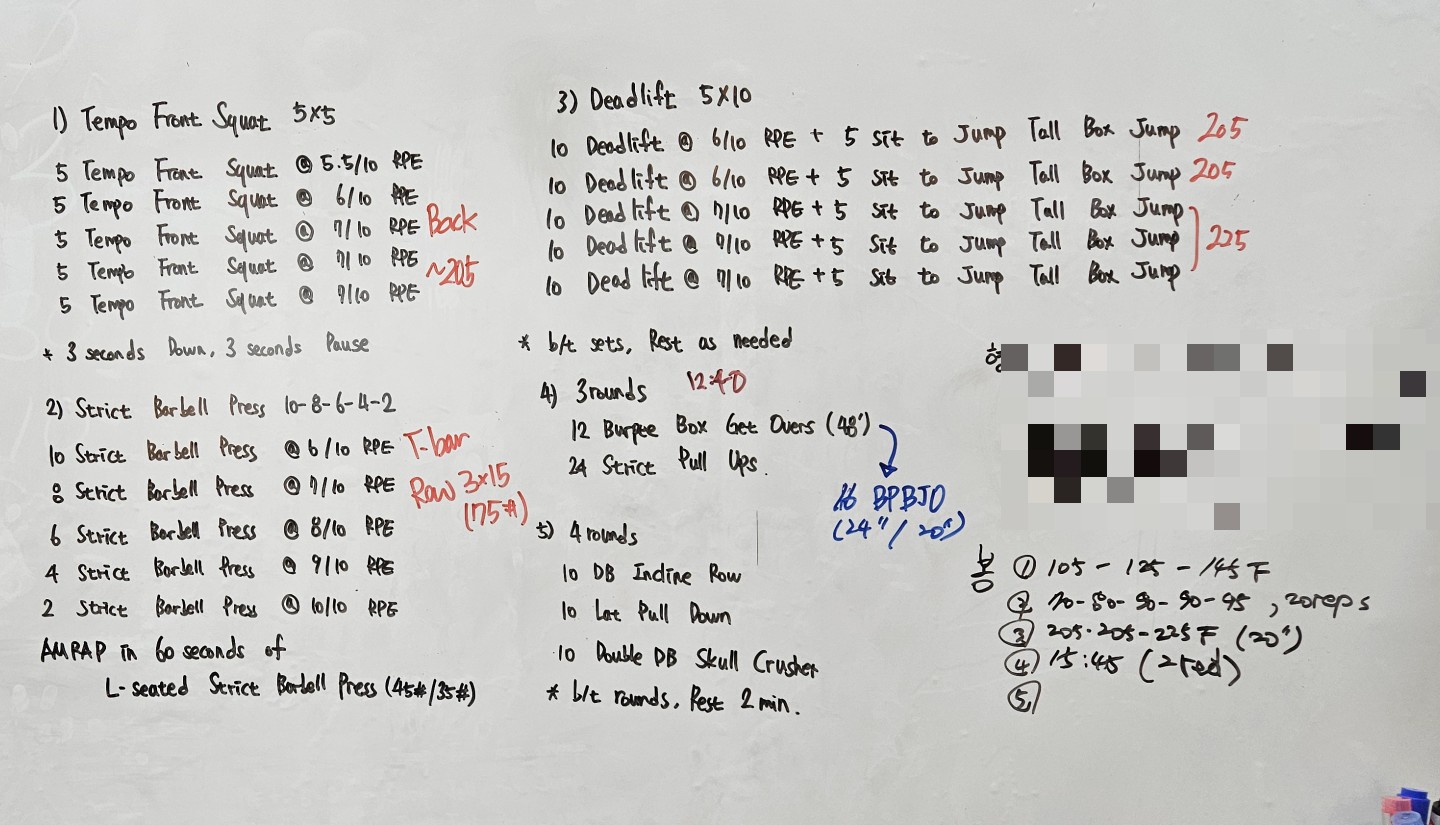 1) Tempo Front Squat 5x5
5 Tempo Front Squat @ 5.5/10 RPE
5 Tempo Front Squat @ 6/10 RPE
5 Tempo Front Squat @ 7/10 RPE
5 Tempo Front Squat @ 7/10 RPE
5 Tempo Front Squat @ 7/10 RPE
Back
~205
* 3 seconds Down, 3 seconds Pause
2) Strict Barbell Press 10-8-6-4-2
10 Strict Barbell Press @ 6/10 RPE
8 Strict Barbell Press @ 7/10 RPE
6 Strict Barbell Press @ 8/10 RPE
4 Strict Barbell Press @ 9/10 RPE
2 Strict Barbell Press @ 10/10 RPE
T-bar
Row 3x15
(175#)
AMRAP in 60 seconds of
L-seated Strict Barbell Press (45#/35#)
3) Deadlift 5x10
10 Deadlift @ 6/10 RPE + 5 Sit to Jump Tall Box Jump 205
10 Deadlift @ 6/10 RPE + 5 Sit to Jump Tall Box Jump 205
10 Deadlift @ 7/10 RPE + 5 Sit to Jump Tall Box Jump
10 Deadlift @ 7/10 RPE + 5 Sit to Jump Tall Box Jump 225
10 Deadlift @ 7/10 RPE + 5 Sit to Jump Tall Box Jump
* b/t sets, Rest as needed
4) 3 rounds 12:40
12 Burpee Box Get Overs (48")
24 Strict Pull Ups.
BPBJO
(24"/20")
5) 4 rounds
10 DB Incline Row
10 Lat Pull Down
10 Double DB Skull Crusher
* b/t rounds, Rest 2 min.
봉 ① 105 - 125 - 145 F
② 70-80-90-90-95, 20 reps
③ 205-205-225 F (20")
④ 15:45 (2 red)
⑤